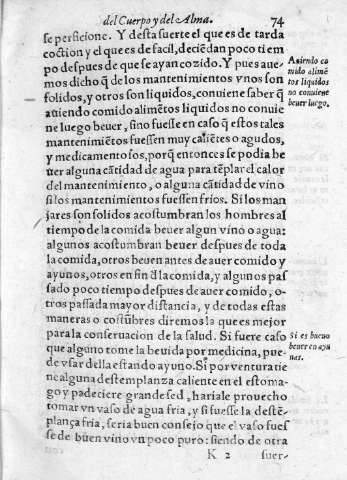 del Cuerpo y del Alma. 74
se perficione. Y desta suerte el que es de tarda
coction y el que es de facil, deciẽdan poco tiem
po despues de que se ayan cozido. Y pues aue-
mos dicho q̃ de los mantenimientos vnos son
solidos, y otros son liquidos, conuiene saber q̃
auiendo comido alimẽtos liquidos no conuie
ne luego beuer, sino fuesse en caso q̃ estos tales
mantenimiẽtos fuessen muy caliẽtes o agudos,
y medicamentosos, porq̃ entonces se podia be
uer alguna cãtidad de agua para tẽplar el calor
del mantenimiento, o alguna cãtidad de vino
si los mantenimientos fuessen frios. Si los man
jares son solidos acostumbran los hombres al
tiempo de la comida beuer algun vino o agua:
algunos acostumbran beuer despues de toda
la comida, otros beuen antes de auer comido y
ayunos, otros en fin d̃ la comida, y algunos pas
sado poco tiempo despues de auer comido, o-
tros passada mayor distancia, y de todas estas
maneras o costũbres diremos la que es mejor
para la conseruacion de la salud. Si fuere caso
que alguno tome la beuida por medicina, pue-
de vsar della estando ayuno. Si por ventura tie
ne alguna destemplanza caliente en el estoma-
go y padeciere grande sed, hariale prouecho
tomar vn vaso de agua fria, y si fuesse la destẽ-
plança fria, seria buen consejo que el vaso fues
se de buen vino vn poco puro: siendo de otra
K 2 suer-
Auiendo co
mido alimẽ
tos liquidos
no conuiene
beuer luego.
Si es bueno
beuer en ayu
nas.